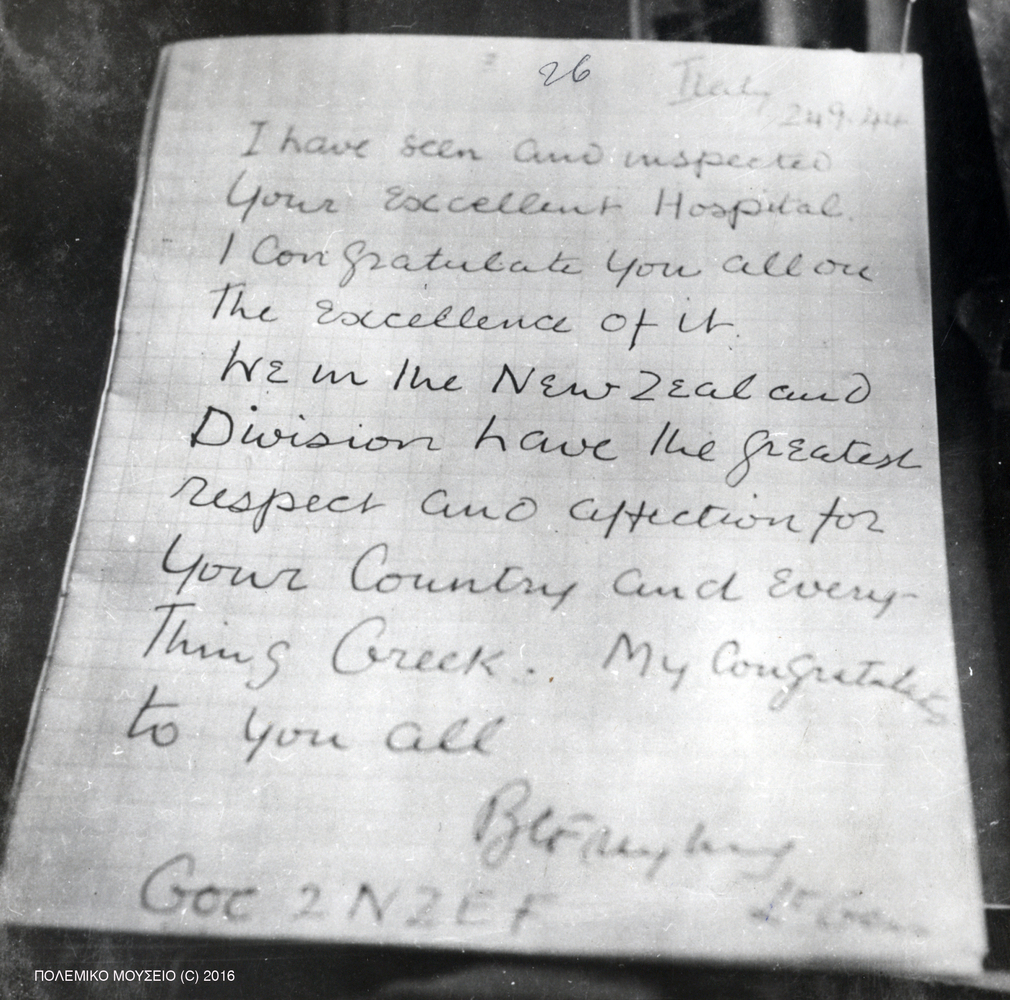 26
Italy
24.9.44
I have seen and inspected
Your Excellent Hospital.
I Congratulate You all on
The Excellence of it.
We in the New Zealand
Division have the greatest
respect and affection for
Your Country and Every-
Thing Greek. My Congratulations
to you all
Lt Gen
GOC 2 NZEF
ΠΟΛΕΜΙΚΟ ΜΟΥΣΕΙΟ (C) 2016